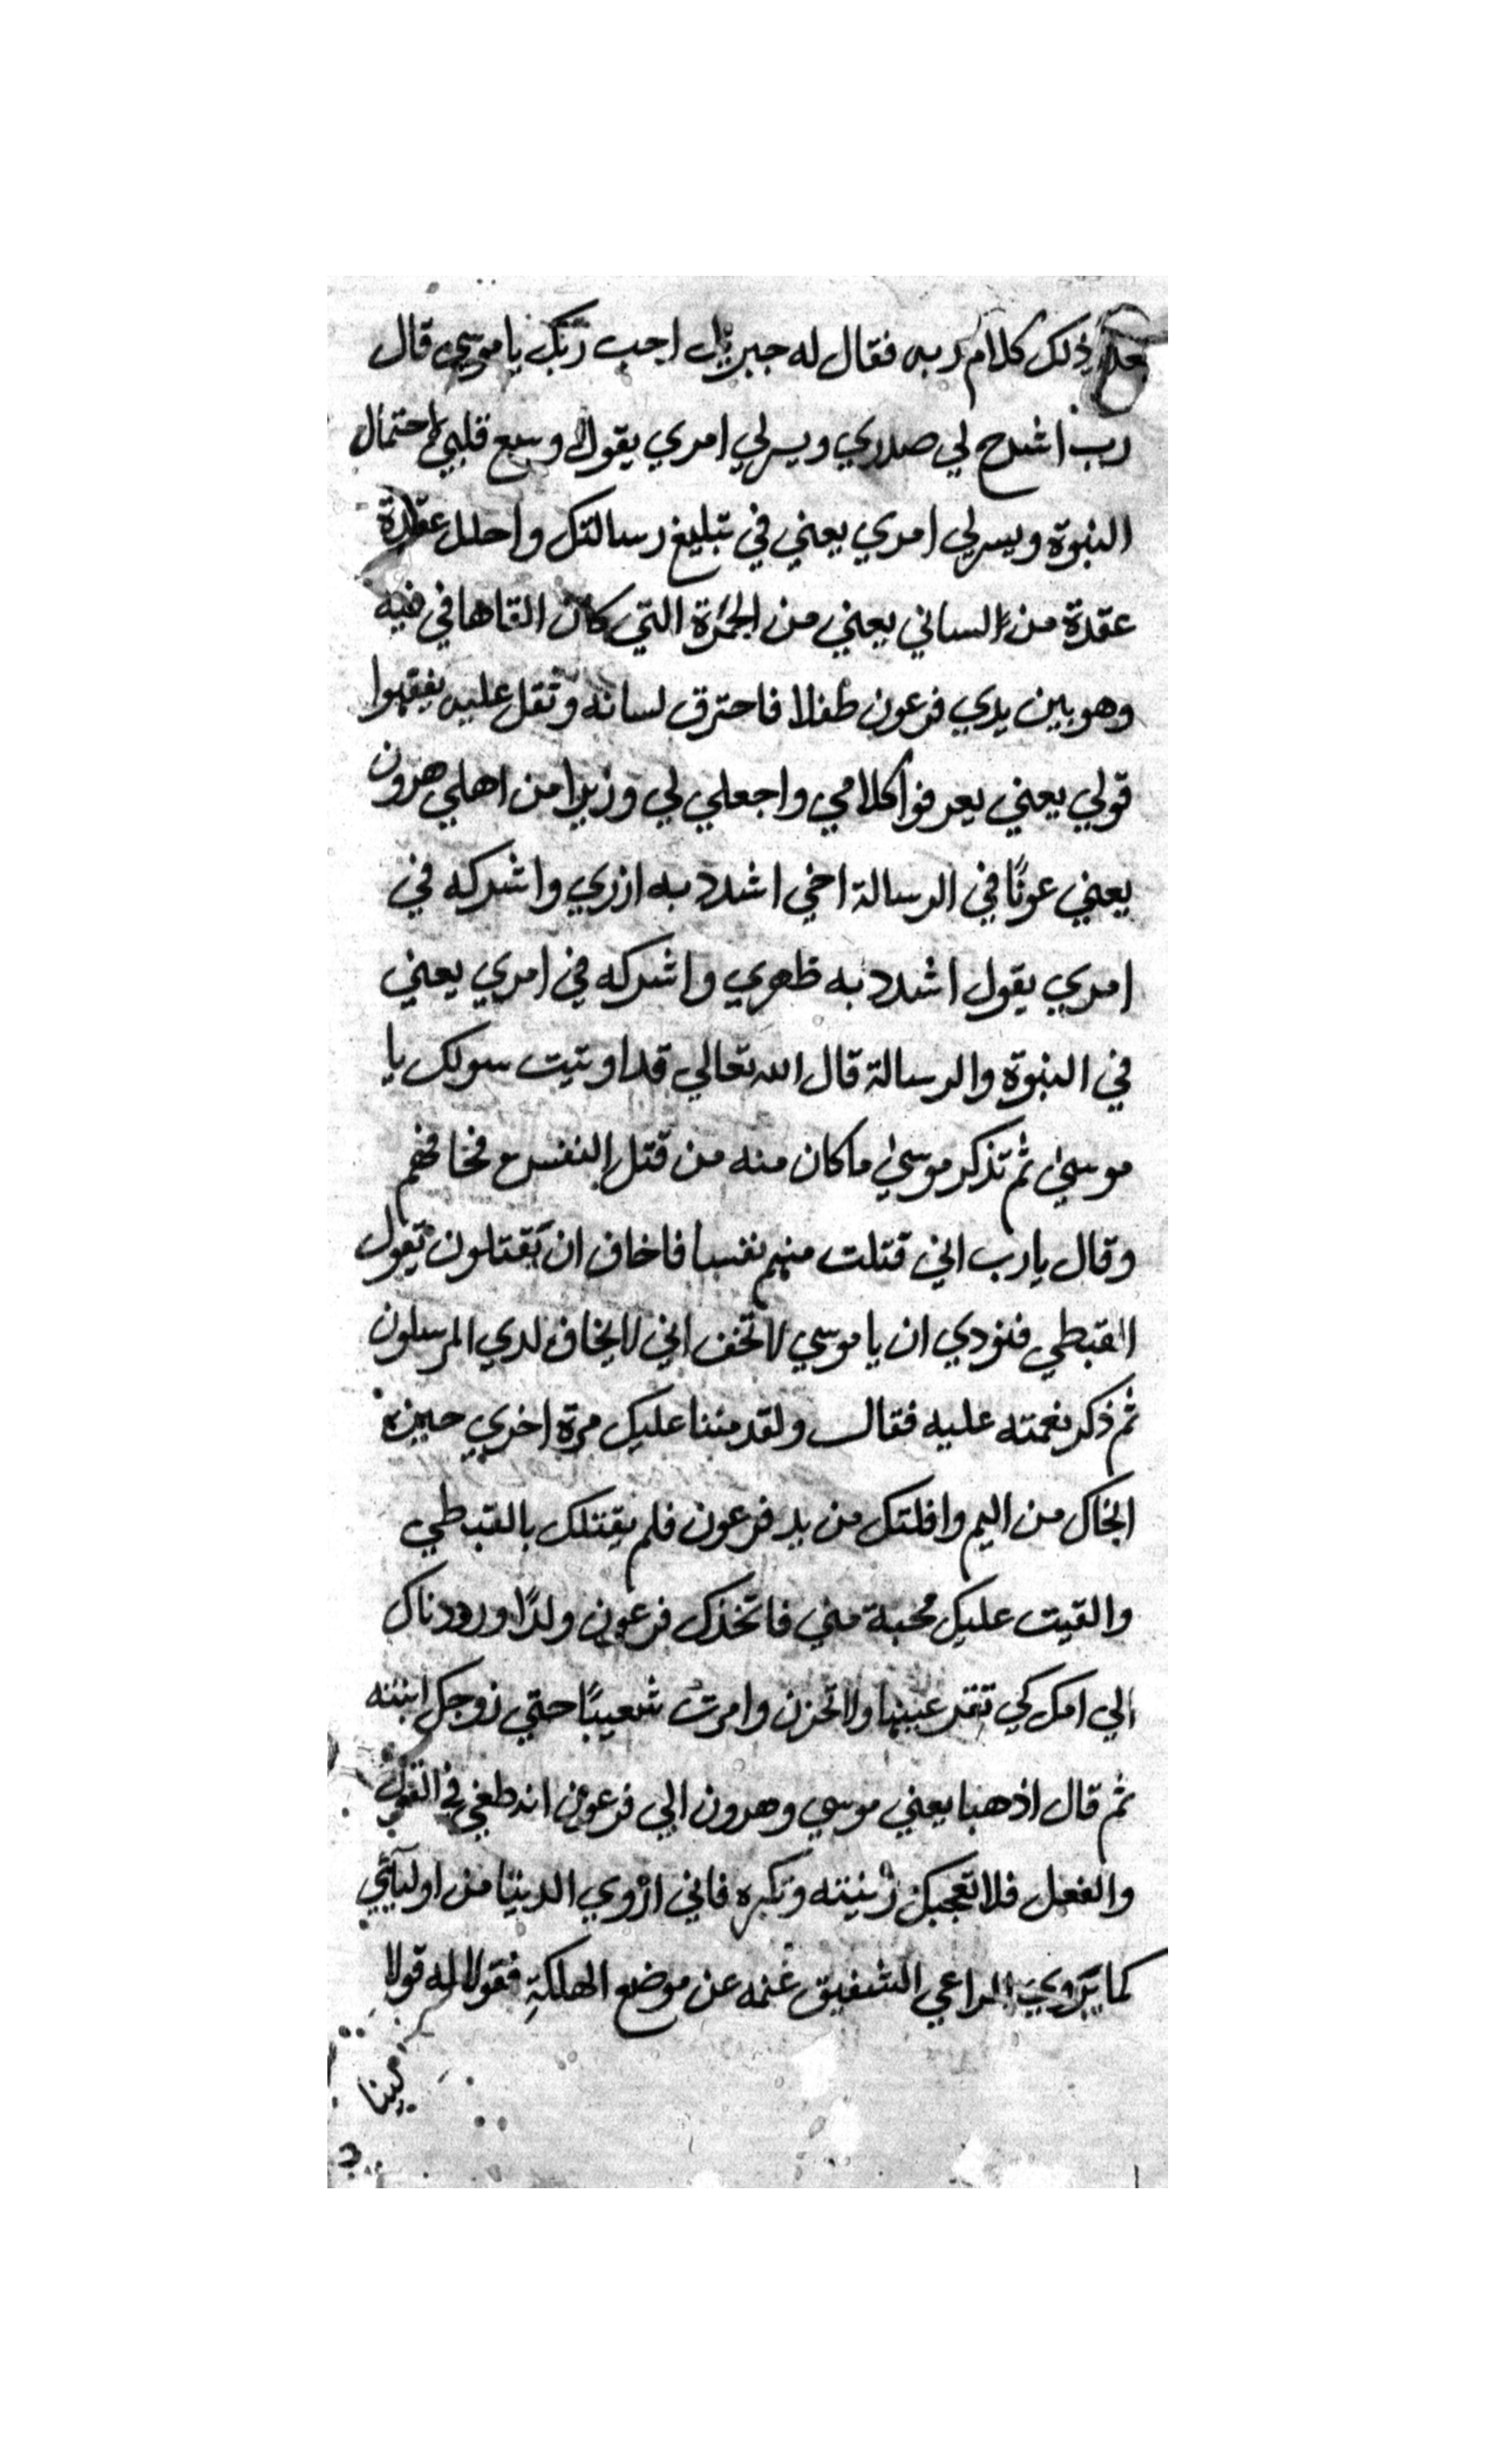 ذلك كلام ربه فقال له جبريل اجب ربك يا موسى قال
رب اشرح لي صدري ويسر لي امري يقول وسع قلبي احتمال
النبوة ويسر لي امري يعني في تبليغ رسالتك واحلل عقدة
عقدة من لساني يعني من الجمرة التي كان القاها في فيه
وهو بين يدي فرعون طفلا فاحترق لسانه وثقل عليه يفقهوا
قولي يعني يعرفوا كلامي واجعلي لي وزيرا من اهلي هرون
يعني عونًا في الرسالة اخي اشدد به ازري واشركه في
امري يقول اشدد به ظهري واشركه في امري يعني
في النبوة والرسالة قال الله تعالي قد اوتيت سولك يا
موسي ثم تذكر موسي ما كان منه من قتل النفس فخافهم
وقال يا رب اني قتلت منهم نفسا فاخاف ان يقتلون يقول
القبطي فنودي ان يا موسي لا تخف اني لا يخاف لدي المرسلون
ثم ذكر نعمته عليه فقال ولقد مننا عليك مرة اخري حين
انجاك من اليم وافلتك من يد فرعون فلم يقتلك بالقبطي
والقيت عليك محبة مني فاتخذك فرعون ولدًا ورددناك
الي امك كي تقر عينها ولا تحزن وامرت شعيبًا حتي زوجك ابنته
ثم قال اذهبا يعني موسي وهرون الي فرعون انه طغي في القول
والفعل فلا تعجبك زينته وتكبره فاني ازوي الدينا من اوليآئي
كما يزوي الراعي الشفيق غنمه عن موضع الهلكة فقولا له قولا
لينا